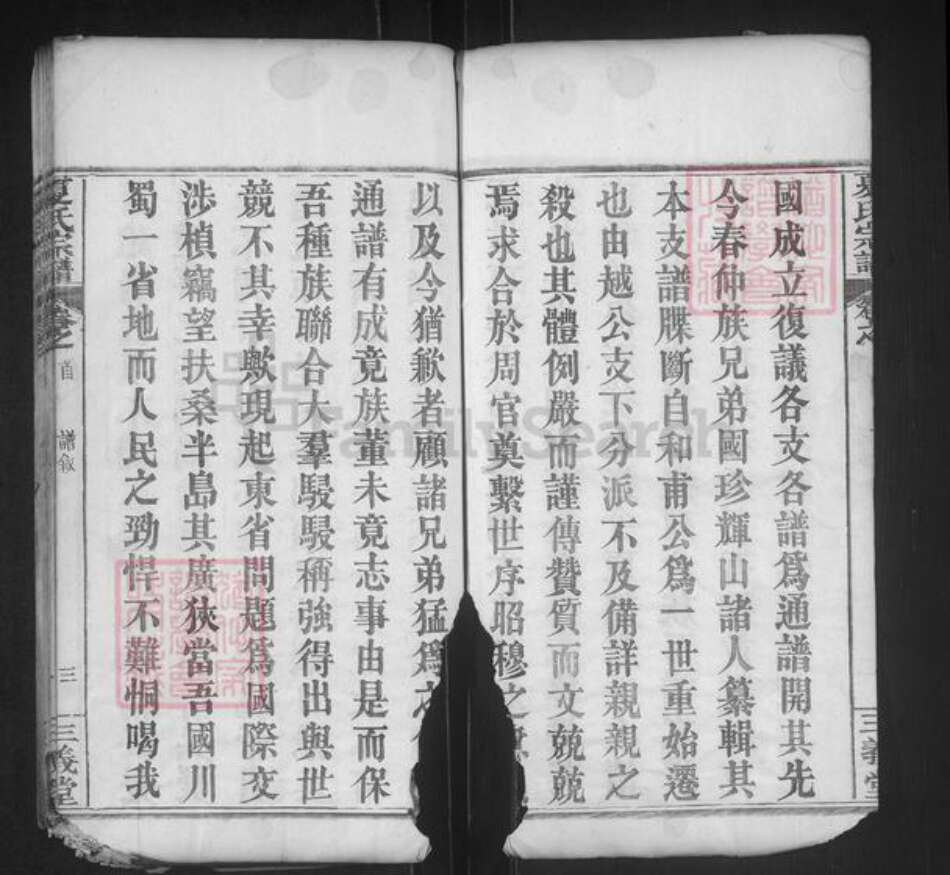 國成立復議各支各譜爲通譜開其先
今春仲族兄弟國珍輝山諸人纂輯其
本支譜牒斷自和甫公爲一世重始遷
也由越公支下分派不及備詳親親之
殺也其體例嚴而謹傳贊質而文兢兢
焉求合於周官奠繫世序昭穆之
以及今猶歉者顧諸兄弟猛爲之
通譜有成竟族董未竟志事由是而保
吾種族聯合大羣駸駸稱強得出與世
競不其幸歟現起東省問題爲國際交
涉楨竊望扶桑半島其廣狹當吾國川
蜀一省地而人民之勁悍不難恫喝我
夏氏宗譜
卷之
首
譜敘
三
三義堂
夏氏宗譜
卷之
三義堂
FamilySearch